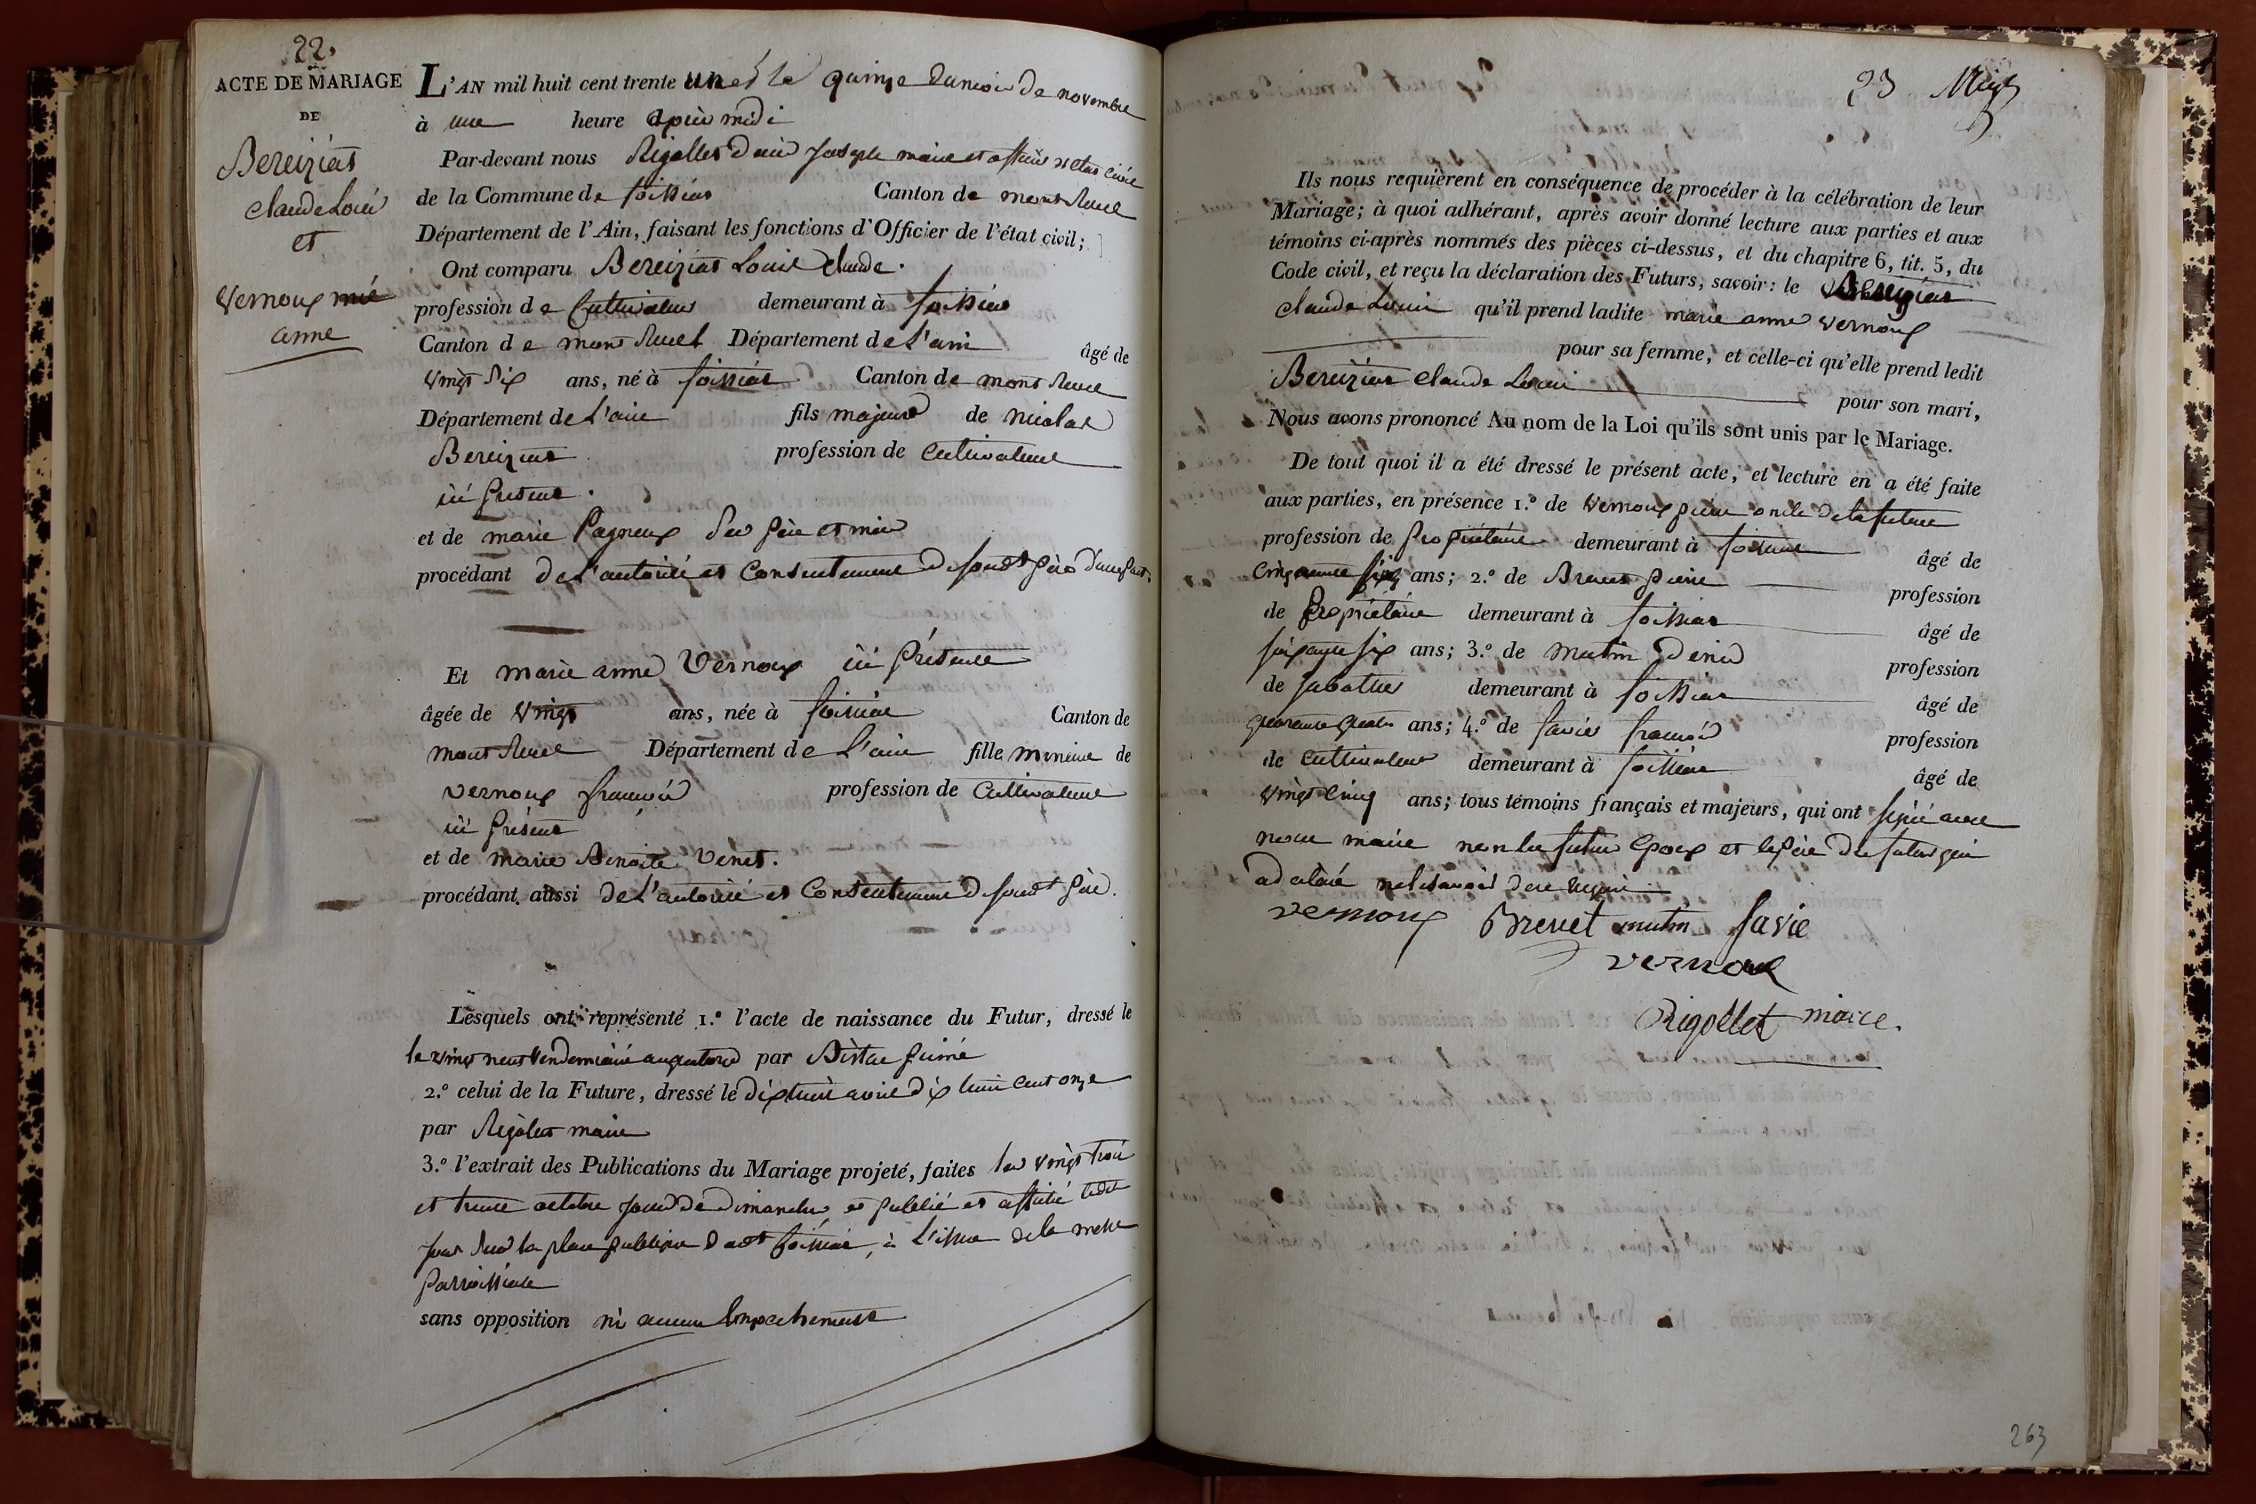 22.
ACTE DE MARIAGE
DE
Bereiziat
Claude Louis
et
Vernoux mie
anne
L'AN mil huit cent trente un et le quinze du mois de novembre
à une heure après midi
Par-devant nous Rigollet Denis Joseph maire et officier de l'état civil
de la Commune de foissiat Canton de montrevel
Département de l'Ain, faisant les fonctions d'Officier de l'état civil;
Ont comparu Bereiziat Louis Claude.
profession de Cultivateur demeurant à foissiat
Canton de montrevel Département de L'ain âgé de
vingt six ans, né à foissiat Canton de montrevel
Département de L'ain fils majeur de nicolas
Bereiziat profession de Cultivateur
ici présent.
et de marie Pagneux ses père et mère
procédant de L'autorité et Consentement de son dt père d'une part,
Et marie anne Vernoux ici présente
âgée de vingt ans, née à foissiat Canton de
montrevel Département de L'ain fille mineure de
vernoux françois profession de Cultivateur
ici présent
et de marie Benoite Venet.
procédant aussi de L'autorité et Consentement de son dt père.
Lesquels ont représenté 1.º l'acte de naissance du Futur, dressé le
le vingt neuf vendemiaire an quatorze par
2.º celui de la Future, dressé le dix huit avril dix huit cent onze
par Rigollet maire
3.º l'extrait des Publications du Mariage projeté, faites les vingt trois
et trente octobre jours de dimanche et publié et affiché ledit
jour sur la place publique dudt foissiat, à L'issue de la messe
Parroissiale
sans opposition ni aucun Empechement
23
Ils nous requièrent en conséquence de procéder à la célébration de leur
Mariage; à quoi adhérant, après avoir donné lecture aux parties et aux
témoins ci-après nommés des pièces ci-dessus, et du chapitre 6, tit. 5, du
Code civil, et reçu la déclaration des Futurs, savoir: le Bereiziat
Claude Louis qu'il prend ladite marie anne vernoux
pour sa femme, et celle-ci qu'elle prend ledit
Bereiziat Claude Louis pour son mari,
Nous avons prononcé Au nom de la Loi qu'ils sont unis par le Mariage.
De tout quoi il a été dressé le présent acte, et lecture en a été faite
aux parties, en présence 1.º de Vernoux pierre oncle de la future
profession de Propriétaire demeurant à foissiat âgé de
cinquante six ans; 2.º de Brevet Pierre profession
de Propriétaire demeurant à foissiat âgé de
soixante six ans; 3.º de mutin Denis profession
de sabotier demeurant à foissiat âgé de
quarante quatre ans; 4.º de favier françois profession
de Cultivateur demeurant à foissiat âgé de
vingt cinq ans; tous témoins français et majeurs, qui ont signé avec
nous maire non les futurs Epoux et le père du futur qui
a déclaré ne le savoir de ce requis
vernoux Brevet mutin favie
vernoux
Rigollet maire.
263